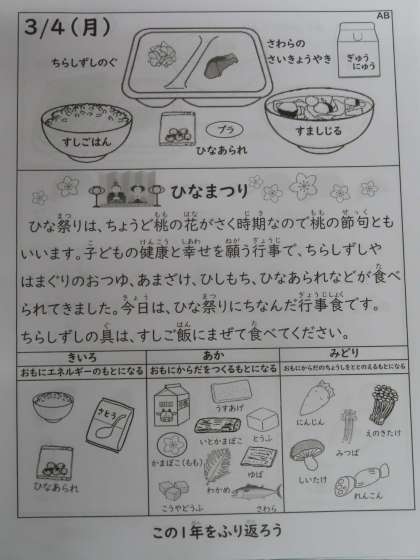 AB
3/4(月)
ちらしずしのぐ
さわらの
さいきょうやき
ぎゅう
にゅう
すしごはん
プラ
ひなあられ
すましじる
ひなまつり
ひな祭りは、ちょうど桃の花がさく時期なので桃の節句とも
いいます。子どもの健康と幸せを願う行事で、ちらしずしや
はまぐりのおつゆ、あまざけ、ひしもち、ひなあられなどが食べ
られてきました。今日は、ひな祭りにちなんだ行事食です。
ちらしずしの具は、すしご飯にまぜて食べてください。
きいろ
おもにエネルギーのもとになる
さとう
ひなあられ
あか
おもにからだをつくるもとになる
うすあげ
いとかまぼこ
とうふ
かまぼこ(もも)
ゆば
わかめ
こうやどうふ
さわら
みどり
おもにからだのちょうしをととのえるもとになる
にんじん
みつば
えのきたけ
しいたけ
れんこん
この1年をふり返ろう